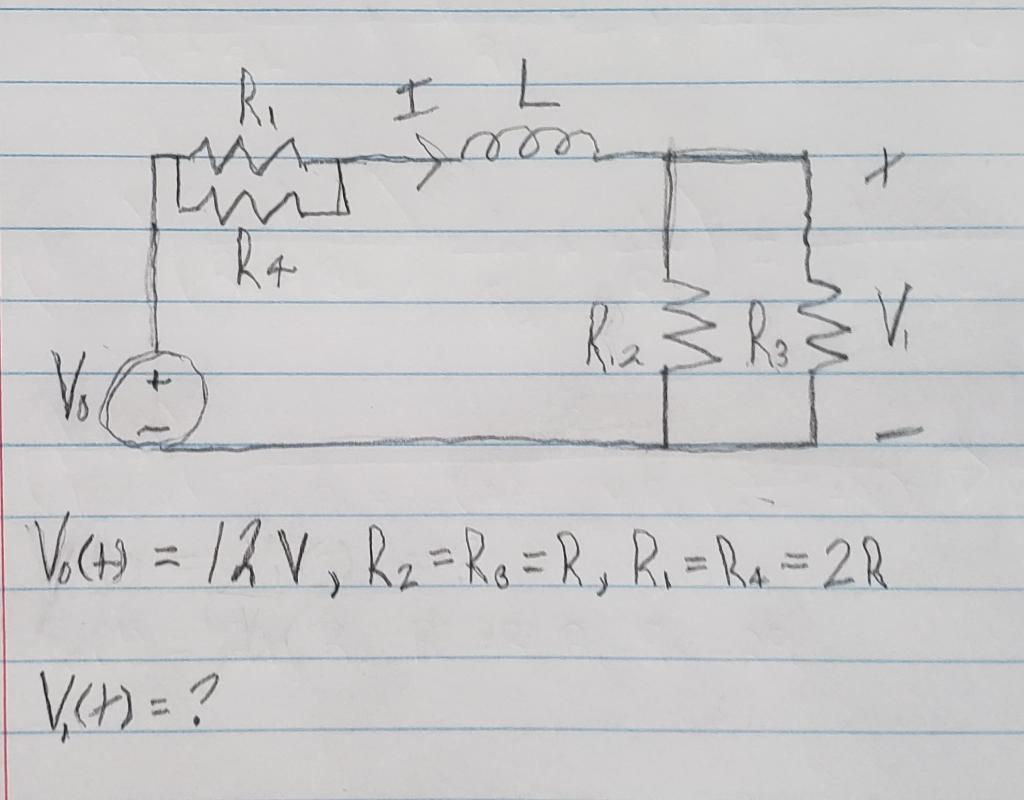 R₁
I
L
R₄
R₂
R₃
V₁
V₀
+
−
+
−
V₀(t) = 12V, R₂ = R₃ = R, R₁ = R₄ = 2R
V₁(t) = ?